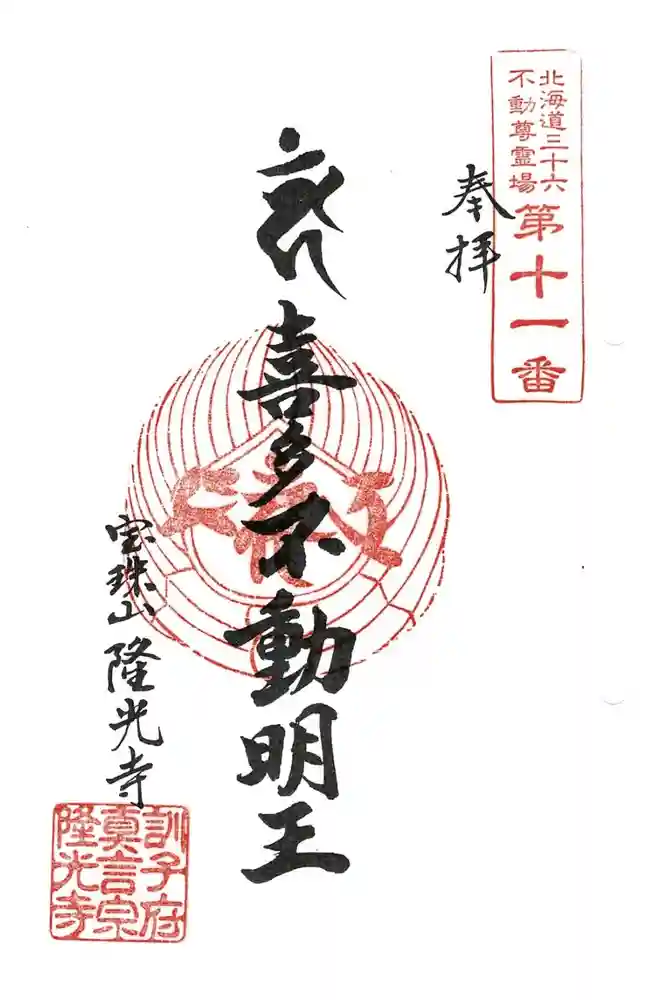 北海道三十六
不動尊霊場
第十一番
奉拝
喜多不動明王
宝珠山隆光寺
訓子府
真言宗
隆光寺